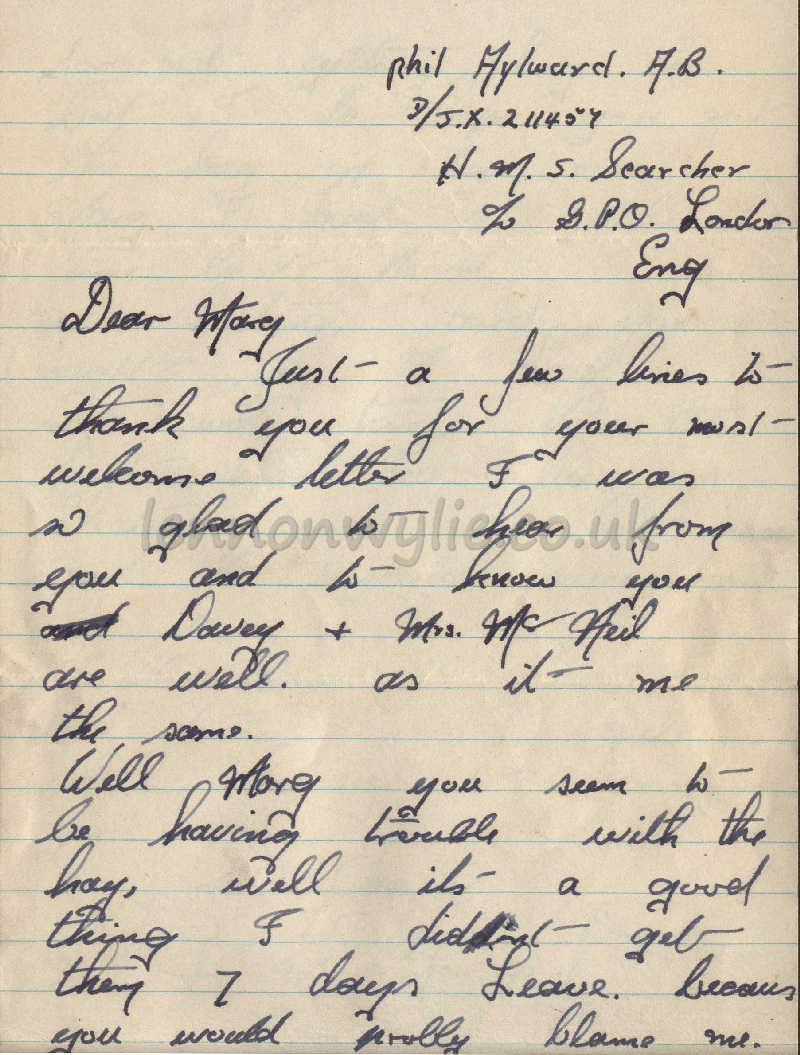 phil Aylward. A.B.
D/J.X. 211457
H.M.S. Searcher
c/o G.P.O. London
Eng
Dear Marg
Just a few lines to
thank you for your most
welcome letter I was
so glad to hear from
you and to know you
Davey + Mrs. Mc Neil
are well. as it me
the same.
Well Marg you seem to
be having trouble with the
hay, well its a good
thing I didnt get
them 7 days Leave. becaus
you would prolly blame me.
lennonwylie.co.uk